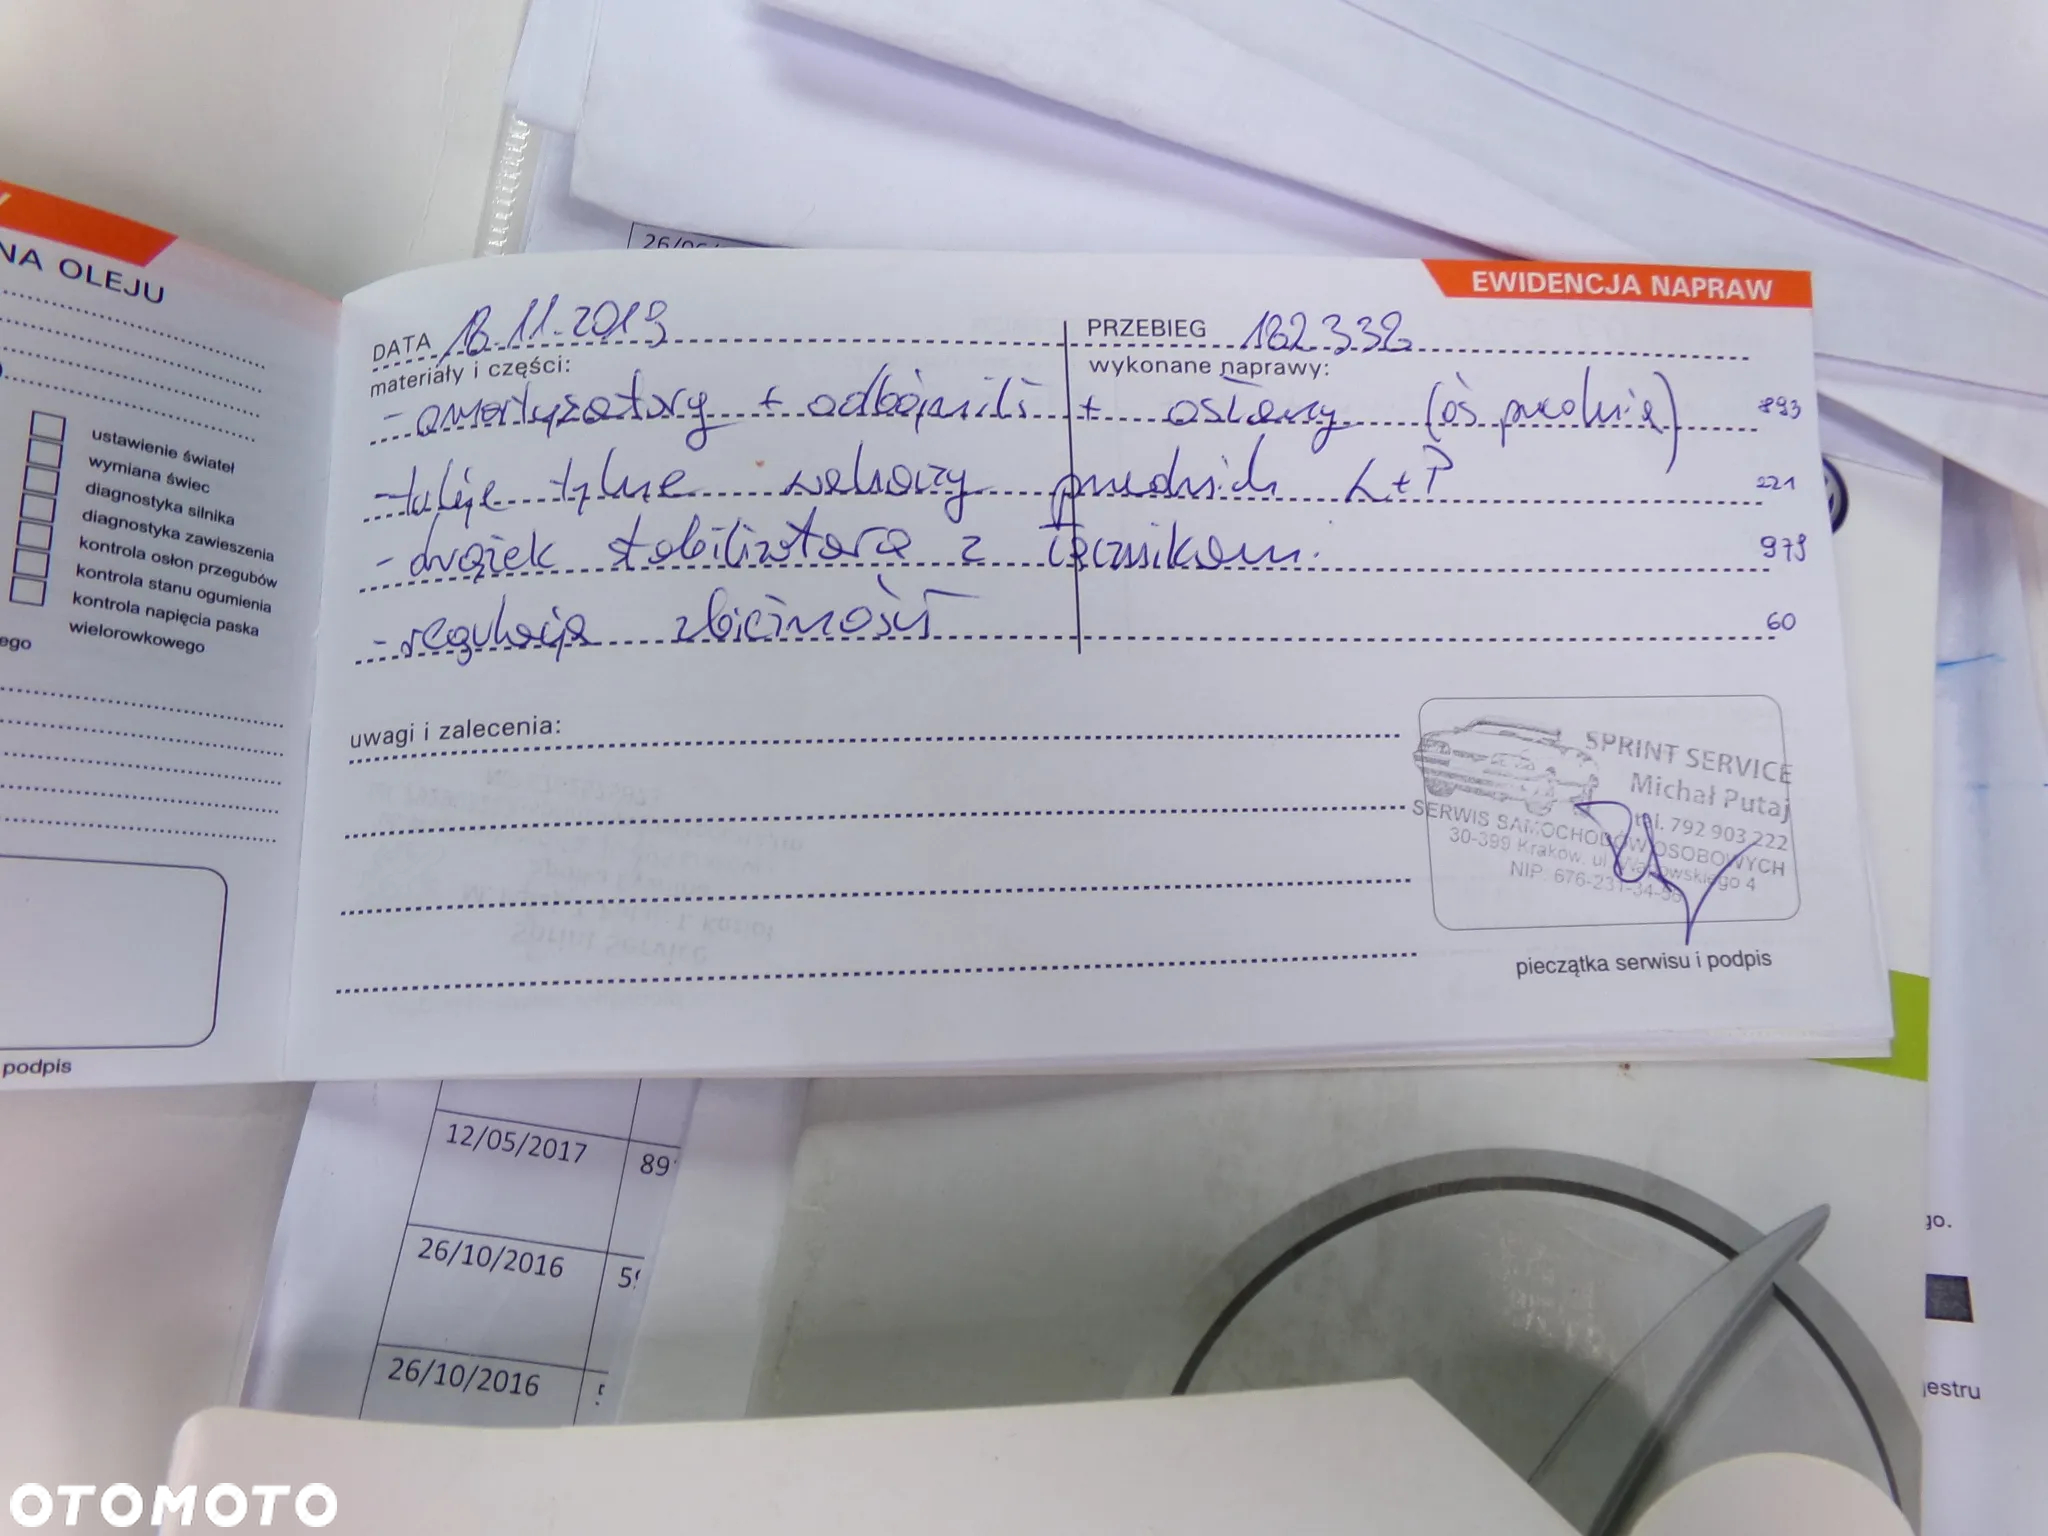 26/0
EWIDENCJA NAPRAW
NA OLEJU
DATA 18.11.2019 PRZEBIEG 182 332
materiały i części: wykonane naprawy:
- amortyzatory + odbojniki + osłony (oś przednia) 893
- tuleje tylne wahaczy przednich L+P 221
- drążek stabilizatora z łącznikami. 979
- regulacja zbieżności 60
ustawienie świateł
wymiana świec
diagnostyka silnika
diagnostyka zawieszenia
kontrola osłon przegubów
kontrola stanu ogumienia
kontrola napięcia paska
wielorowkowego
ego
uwagi i zalecenia:
SPRINT SERVICE
Michał Putaj
tel. 792 903 222
SERWIS SAMOCHODÓW OSOBOWYCH
30-399 Kraków, ul.
NIP 676-231-34-
pieczątka serwisu i podpis
podpis
12/05/2017 89
26/10/2016 59
26/10/2016 5
go.
jestru
OTOMOTO